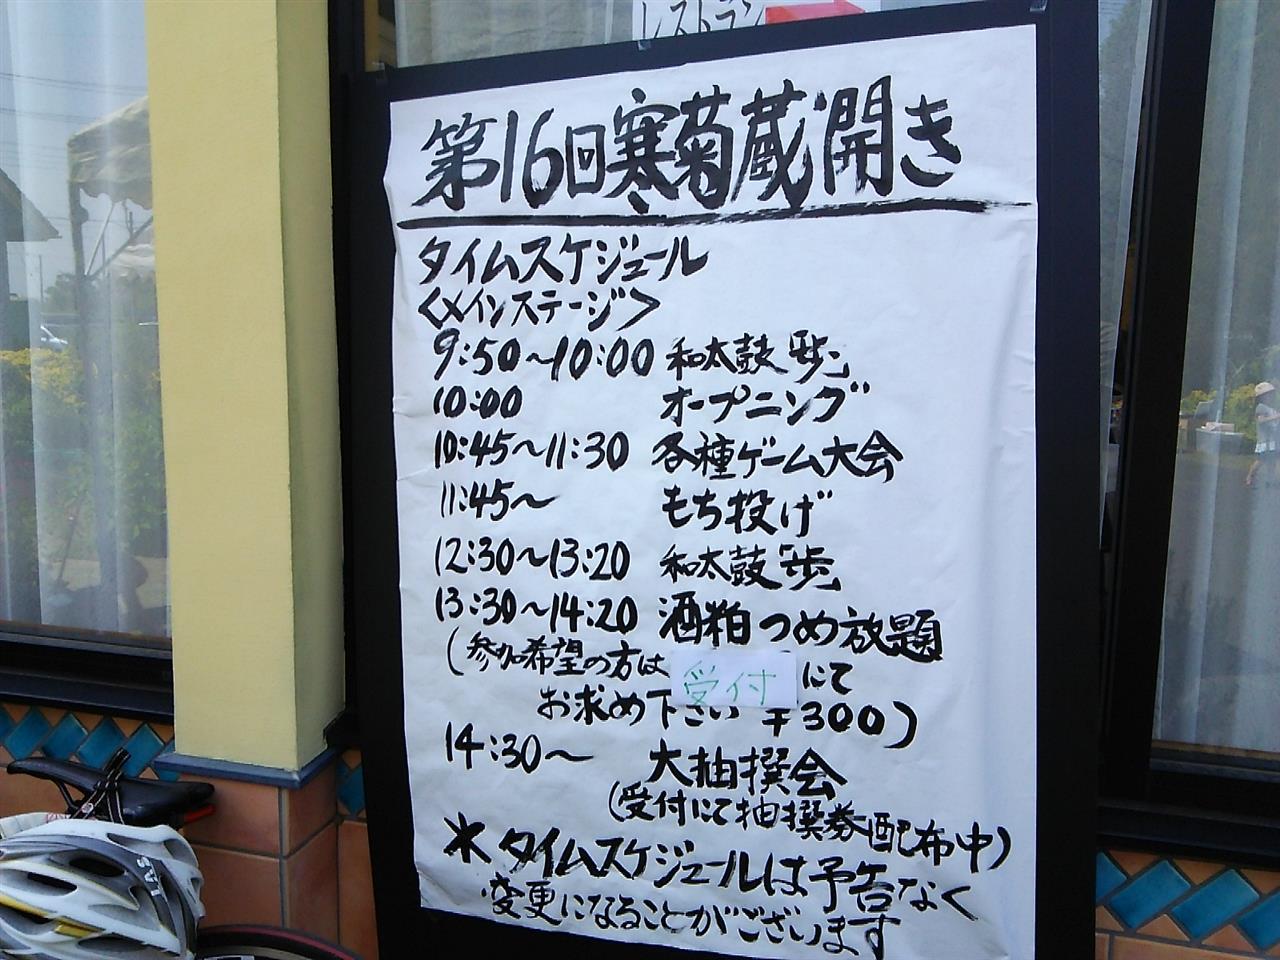 レストラン
第16回寒菊蔵開き
タイムスケジュール
<メインステージ>
9:50〜10:00 和太鼓「歩」
10:00 オープニング
10:45〜11:30 各種ゲーム大会
11:45〜 もち投げ
12:30〜13:20 和太鼓「歩」
13:30〜14:20 酒粕つめ放題
(参加希望の方は受付にて
お求め下さい ¥300)
14:30〜 大抽撰会
(受付にて抽撰券配布中)
* タイムスケジュールは予告なく
変更になることがございます